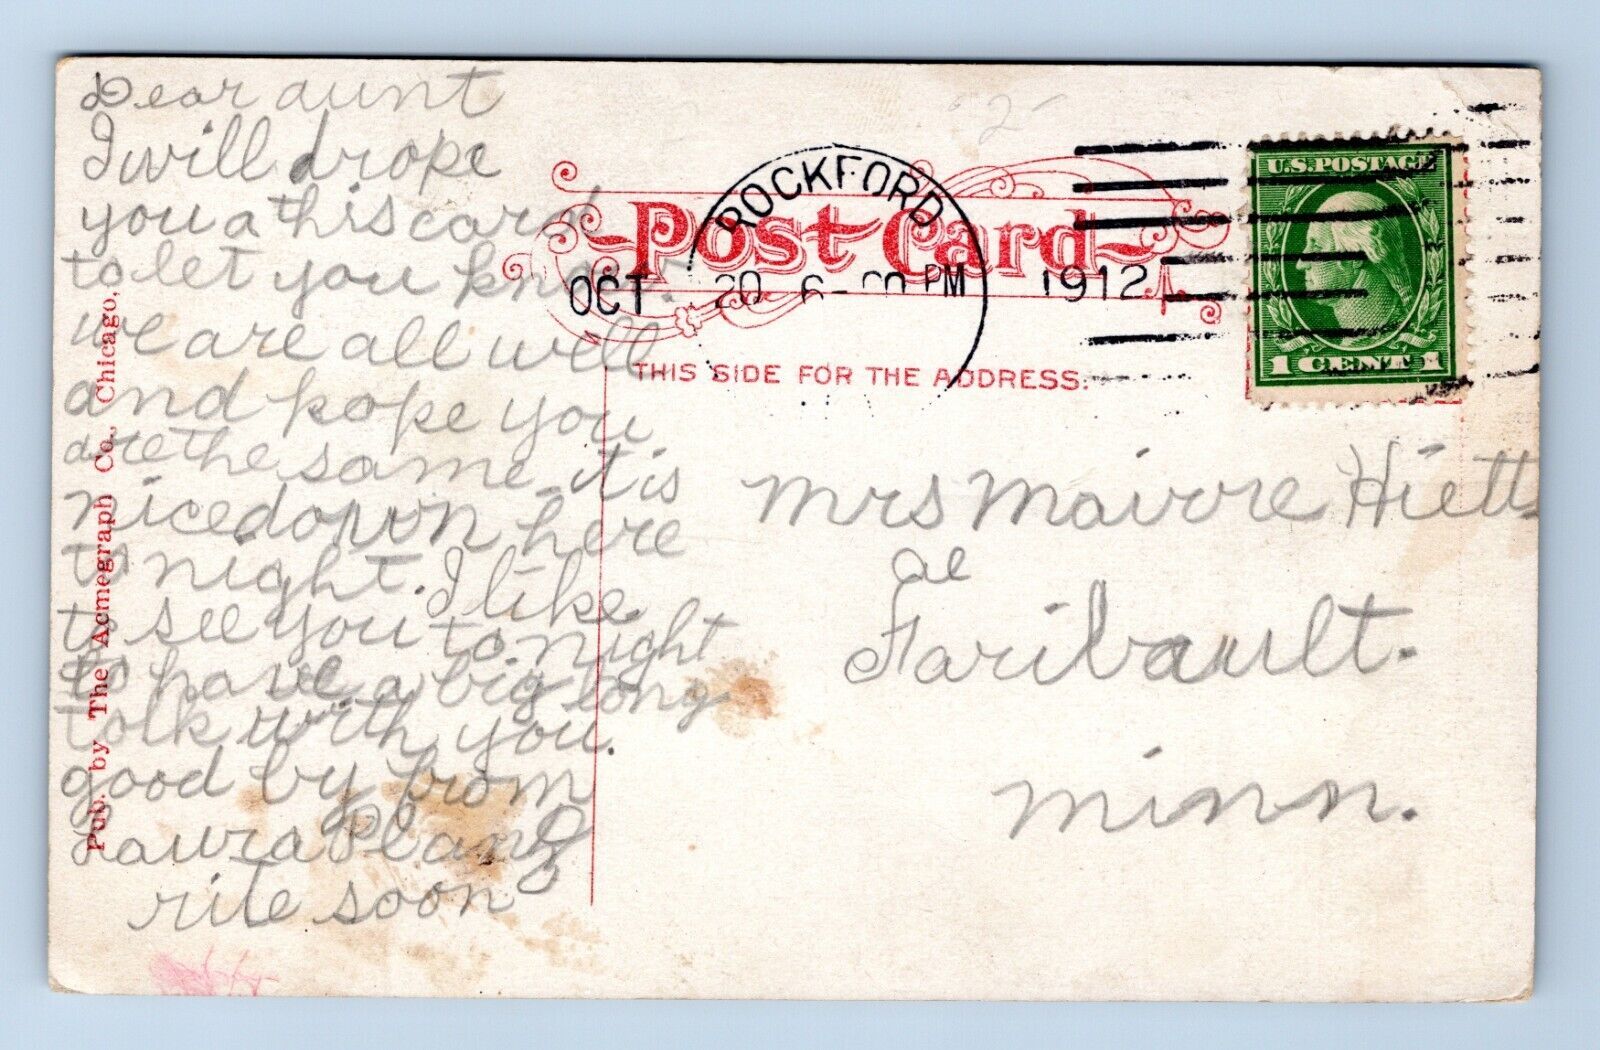 Dear aunt
I will drope
you a this card
to let you know
we are all well
and hope you
are the same. it is
nice down here
to night. I like
to see you to night
to have a big long
tolk with you.
good by from
Laura Plang
rite soon
Pub. by The Acmegraph Co., Chicago.
Post Card
ROCKFORD
OCT 20 6-00 PM 1912
THIS SIDE FOR THE ADDRESS.
U.S. POSTAGE
1 CENT 1
Mrs Hiett
Faribault.
Minn.